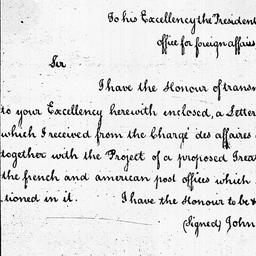 To his Excellency the President
office for foreign affairs
Sir
I have the Honour of transm
to your Excellency herewith enclosed, a Letter
which I received from the Chargé des affaires
together with the Project of a proposed Trea
the french and american post offices which
tioned in it. I have the Honour to be &
(Signed) John